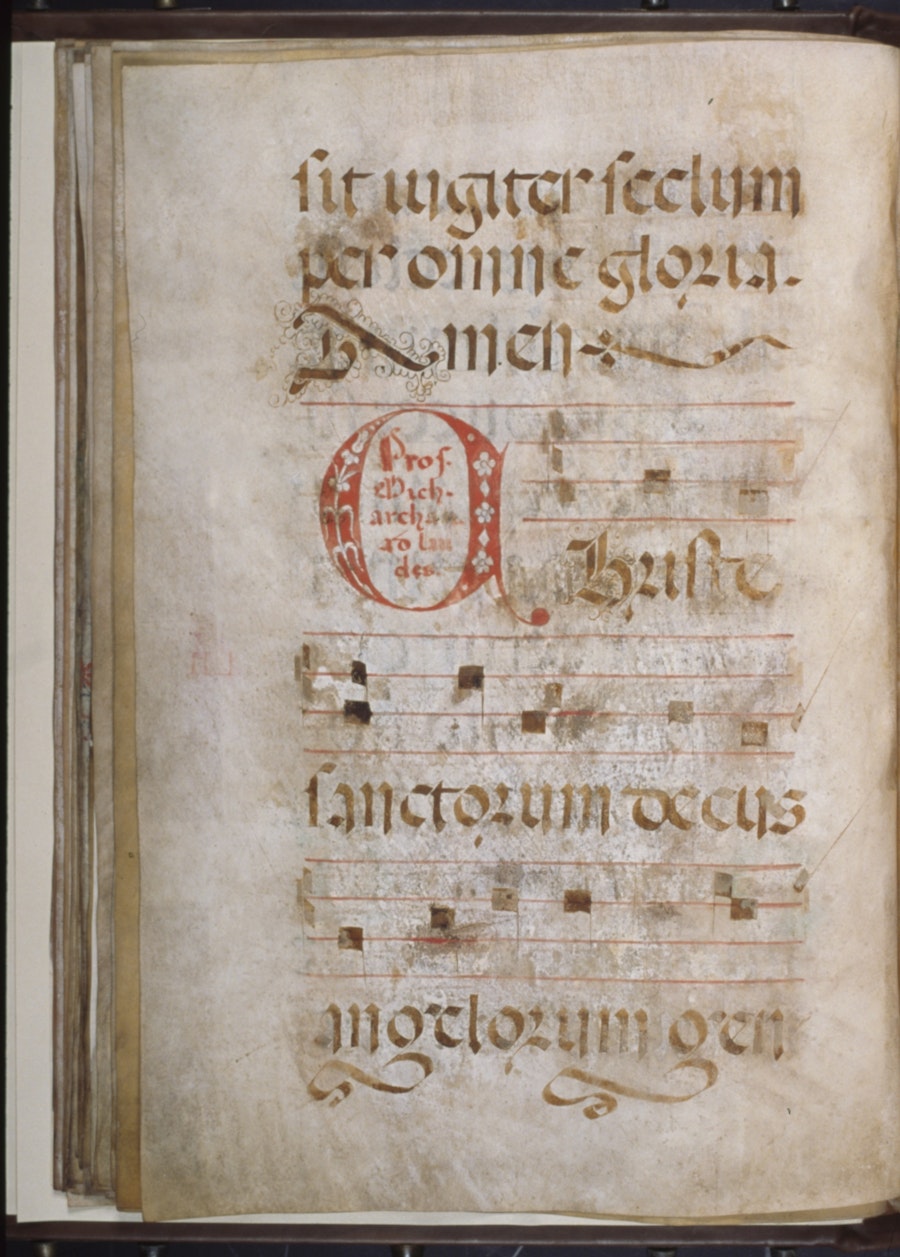 sit iugiter seclum
per omne gloria.
Amen
Pro s.
Mich-
arch
ad lau
des.
Christe
sanctorum decus
angelorum gen